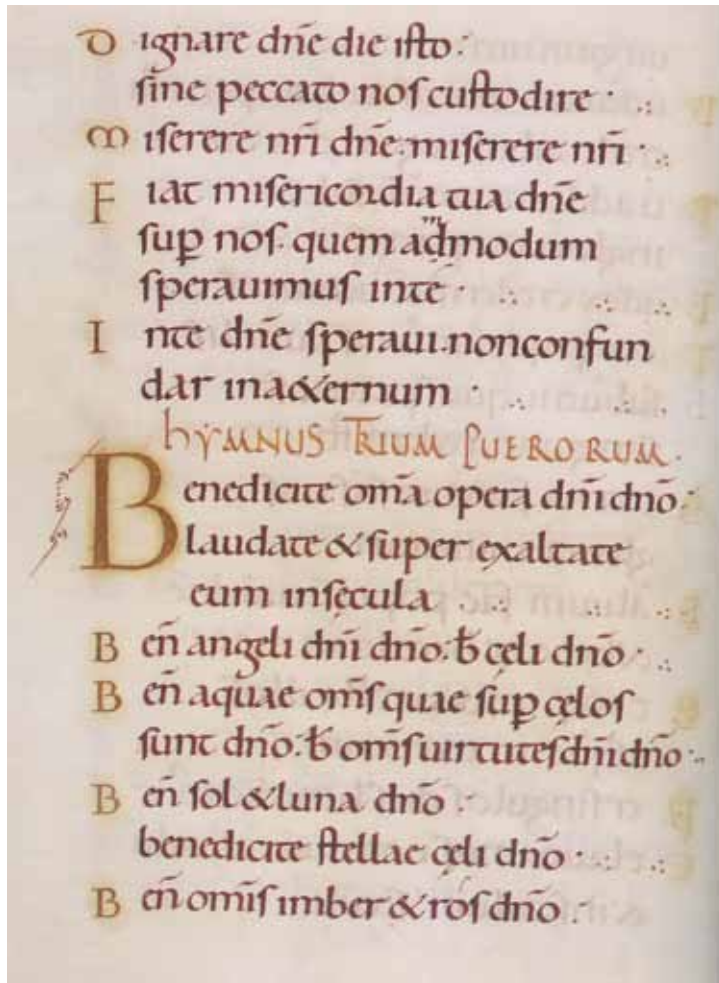 Dignare dn̄e die isto:
sine peccato nos custodire ·.:
Miserere nr̄i dn̄e. miserere nr̄i ·.:
Fiat misericordia tua dn̄e
sup̄ nos. quem admodum
sperauimus inte · .: .:
Inte dn̄e speraui. nonconfun
dar inaeternum · .: .:
hYMNUS TRIUM PUERORUM.
Benedicite om̄a opera dn̄i dn̄o:
laudate & super exaltate
eum insęcula .: .: .:
Ben̄ angeli dn̄i dn̄o. b̄ cęli dn̄o ·.:
Ben̄ aquae om̄s quae sup̄ cęlos
sunt dn̄o. b̄ om̄s uirtutes dn̄i dn̄o ·.
Ben̄ sol & luna dn̄o :
benedicite stellae cęli dn̄o ·.: .:
Ben̄ omīs imber & ros dn̄o :